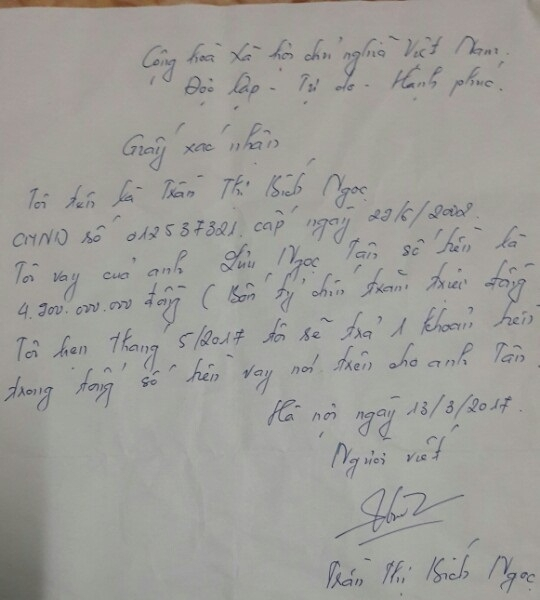 Cộng hoà xã hội chủ nghĩa Việt Nam.
Độc lập - Tự do - Hạnh phúc.
Giấy xác nhận
Tôi tên là Trần Thị Bích Ngọc
CMND số 012537321. cấp ngày 22/6/2002.
Tôi vay của anh Lưu Ngọc Tân số tiền là
4.900.000.000 đồng ( Bốn tỷ chín trăm triệu đồng
Tôi hẹn tháng 5/2017 tôi sẽ trả 1 khoản tiền
trong tổng số tiền vay nói trên cho anh Tân
Hà nội ngày 13/3/2017.
Người viết
Trần Thị Bích Ngọc